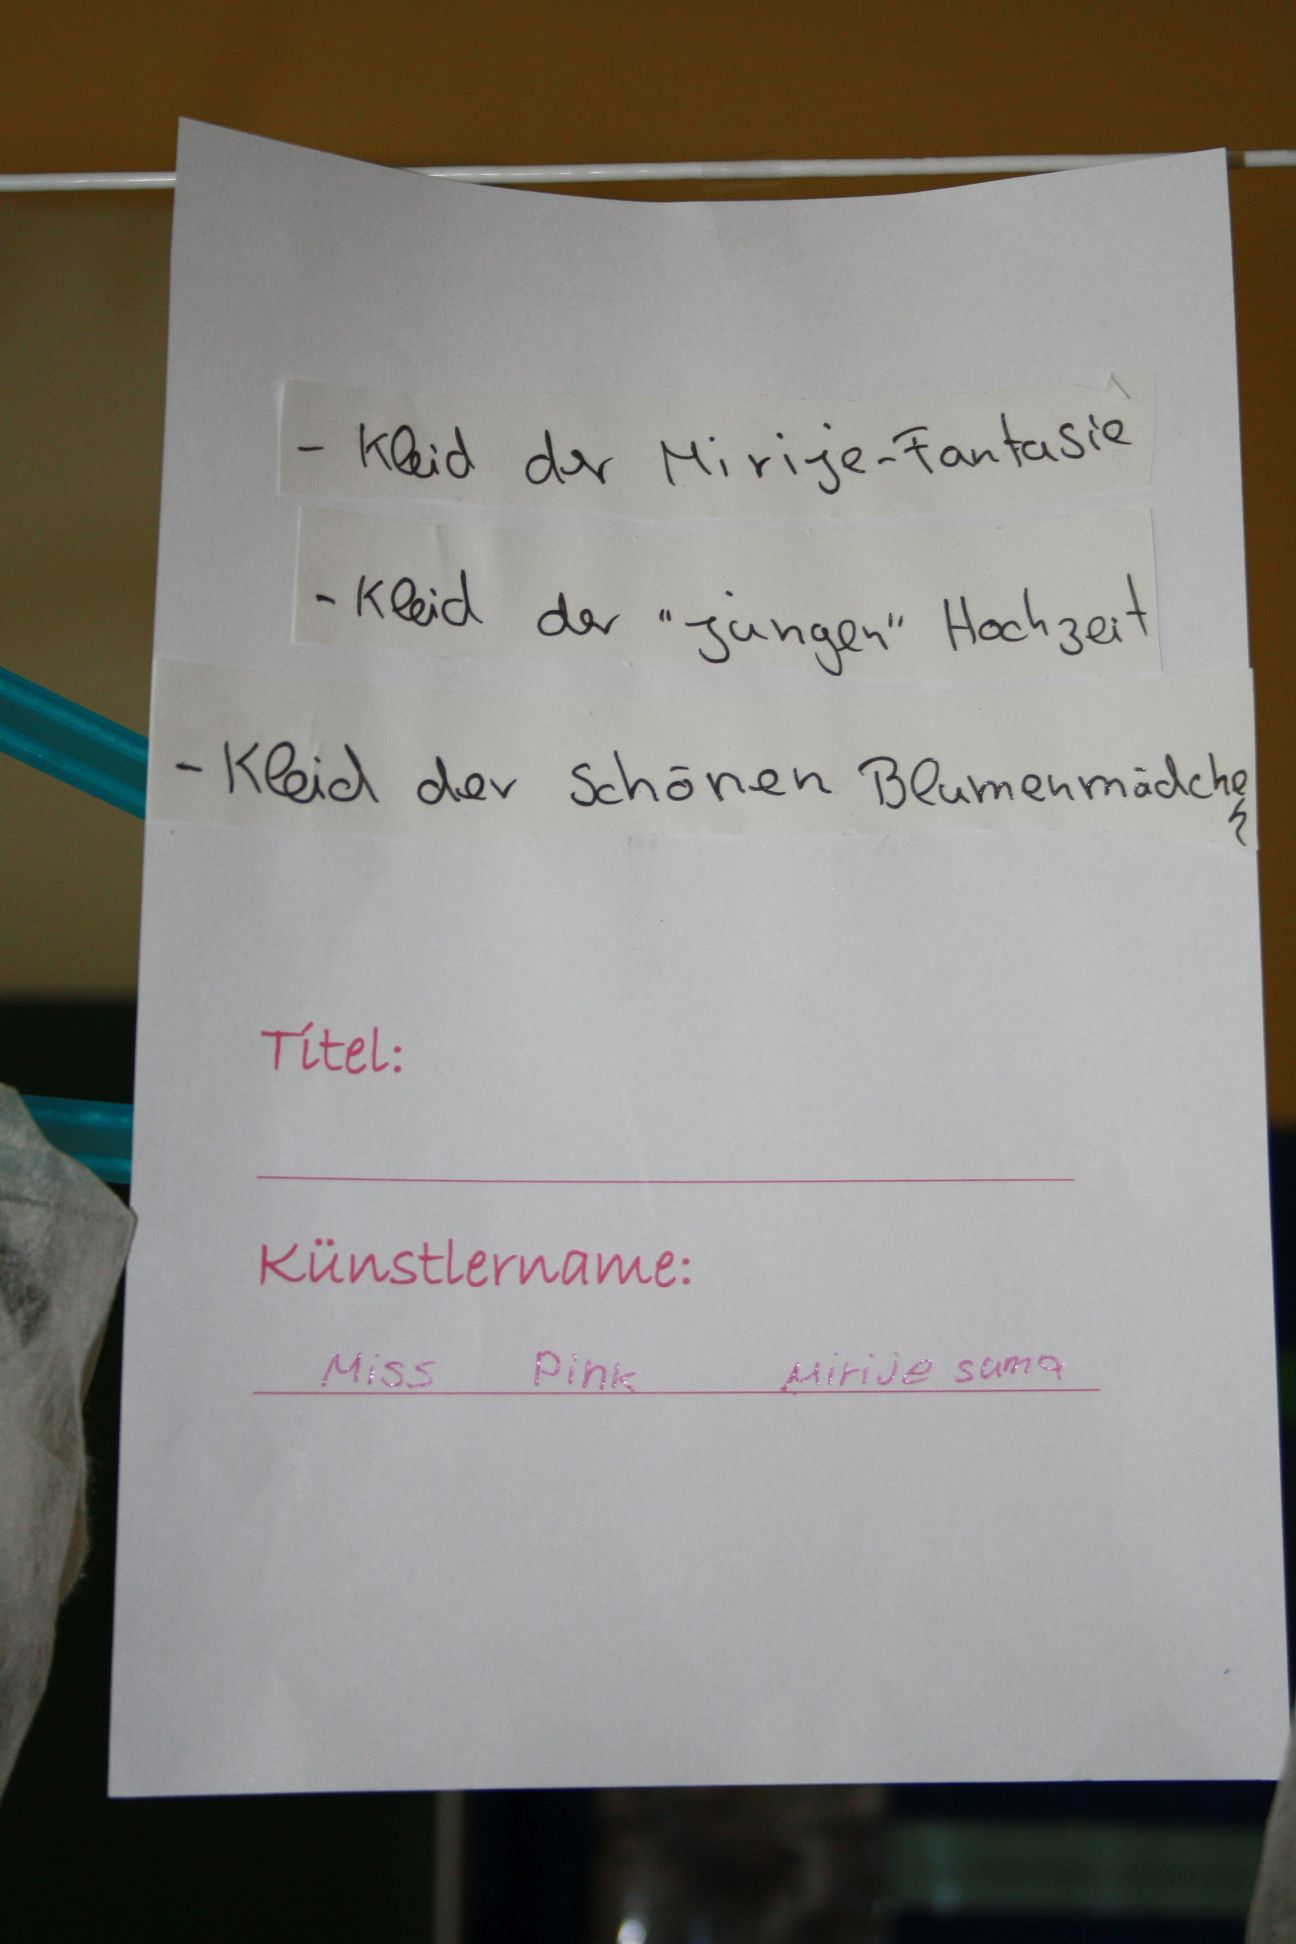 - Kleid der Mirije-Fantasie
- Kleid der "jungen" Hochzeit
- Kleid der schönen Blumenmädchen
Titel:
Künstlername:
Miss Pink Mirije suma